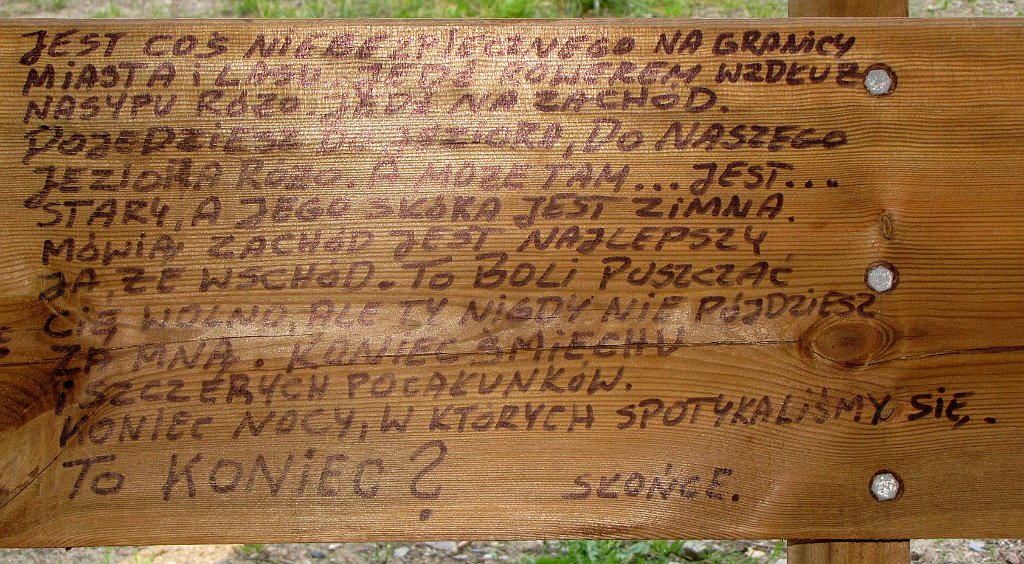 JEST COŚ NIEBEZPIECZNEGO NA GRANICY
MIASTA i LASU. JEDŹ ROWEREM WZDŁUŻ
NASYPU RÓŻO. JEDŹ NA ZACHÓD.
DOJEDZIESZ DO JEZIORA, DO NASZEGO
JEZIORA RÓŻO. A MOŻE TAM... JEST...
STARY, A JEGO SKÓRA JEST ZIMNA.
MÓWIĄ, ZACHÓD JEST NAJLEPSZY
JA, ŻE WSCHÓD. TO BOLI PUSZCZAĆ
CIĘ WOLNO, ALE TY NIGDY NIE PÓJDZIESZ
ZA MNĄ. KONIEC ŚMIECHU
i SZCZERYCH POCAŁUNKÓW.
KONIEC NOCY, W KTÓRYCH SPOTYKALIŚMY SIĘ.
TO KONIEC? SŁOŃCE.